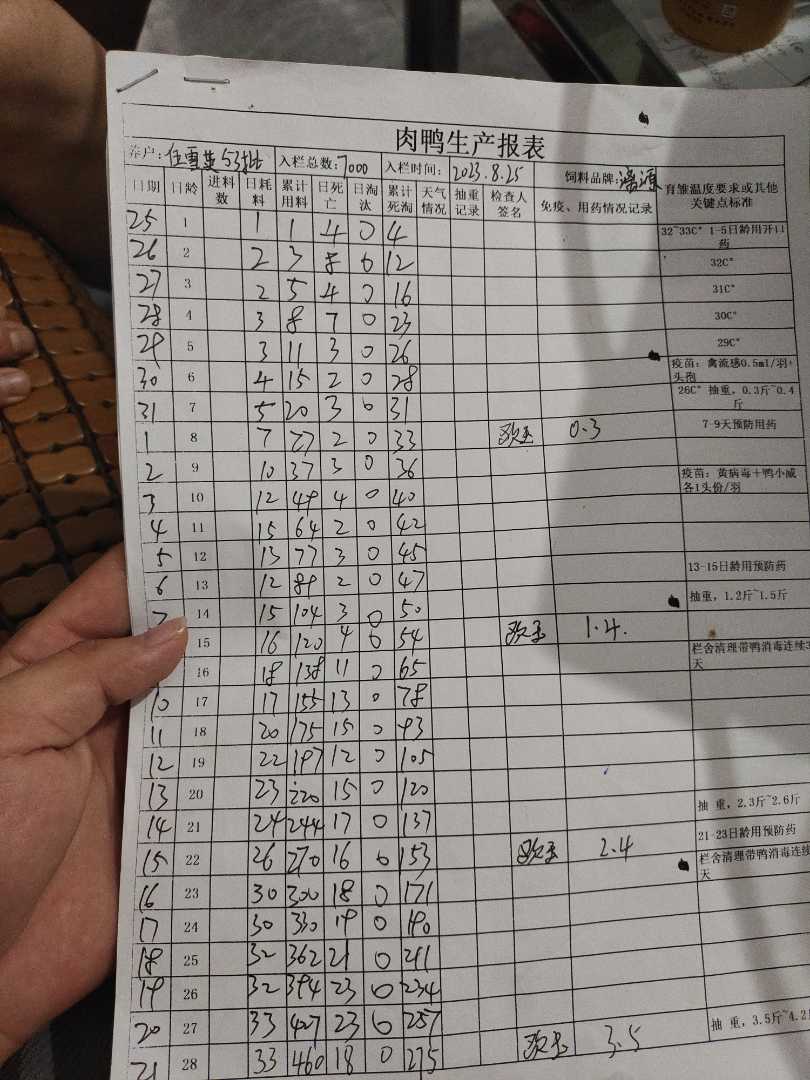 肉鸭生产报表
养户: 任雪 53批 入栏总数: 7000 入栏时间: 2023.8.25 饲料品牌: 源 育雏温度要求或其他关键点标准
日期 日龄 进料数 日耗料 累计用料 日死亡 日淘汰 累计死淘 天气情况 抽重记录 检查人签名 免疫、用药情况记录
25 1 1 1 4 0 4 32~33C° 1-5日龄用开口药
26 2 2 3 8 0 12 32C°
27 3 2 5 4 0 16 31C°
28 4 3 8 7 0 23 30C°
29 5 3 11 3 0 26 29C°
30 6 4 15 2 0 28 疫苗: 禽流感0.5ml/羽+头孢
31 7 5 20 3 0 31 26C° 抽重, 0.3斤~0.4斤
1 8 7 27 2 0 33 0.3 7-9天预防用药
2 9 10 37 3 0 36 疫苗: 黄病毒+鸭小威各1头份/羽
3 10 12 49 4 0 40
4 11 15 64 2 0 42
5 12 13 77 3 0 45 13-15日龄用预防药
6 13 12 89 2 0 47 抽重, 1.2斤~1.5斤
7 14 15 104 3 0 50
15 16 120 4 0 54 1.4. 栏舍清理带鸭消毒连续3天
16 18 138 11 0 65
10 17 17 155 13 0 78
11 18 20 175 15 0 93
12 19 22 197 12 0 105
13 20 23 220 15 0 120 抽 重, 2.3斤~2.6斤
14 21 24 244 17 0 137 21-23日龄用预防药
15 22 26 270 16 0 153 2.4 栏舍清理带鸭消毒连续天
16 23 30 300 18 0 171
17 24 30 330 19 0 190
18 25 32 362 21 0 211
19 26 32 394 23 0 234
20 27 33 427 23 0 257 抽 重, 3.5斤~4.2
21 28 33 460 18 0 275 3.5